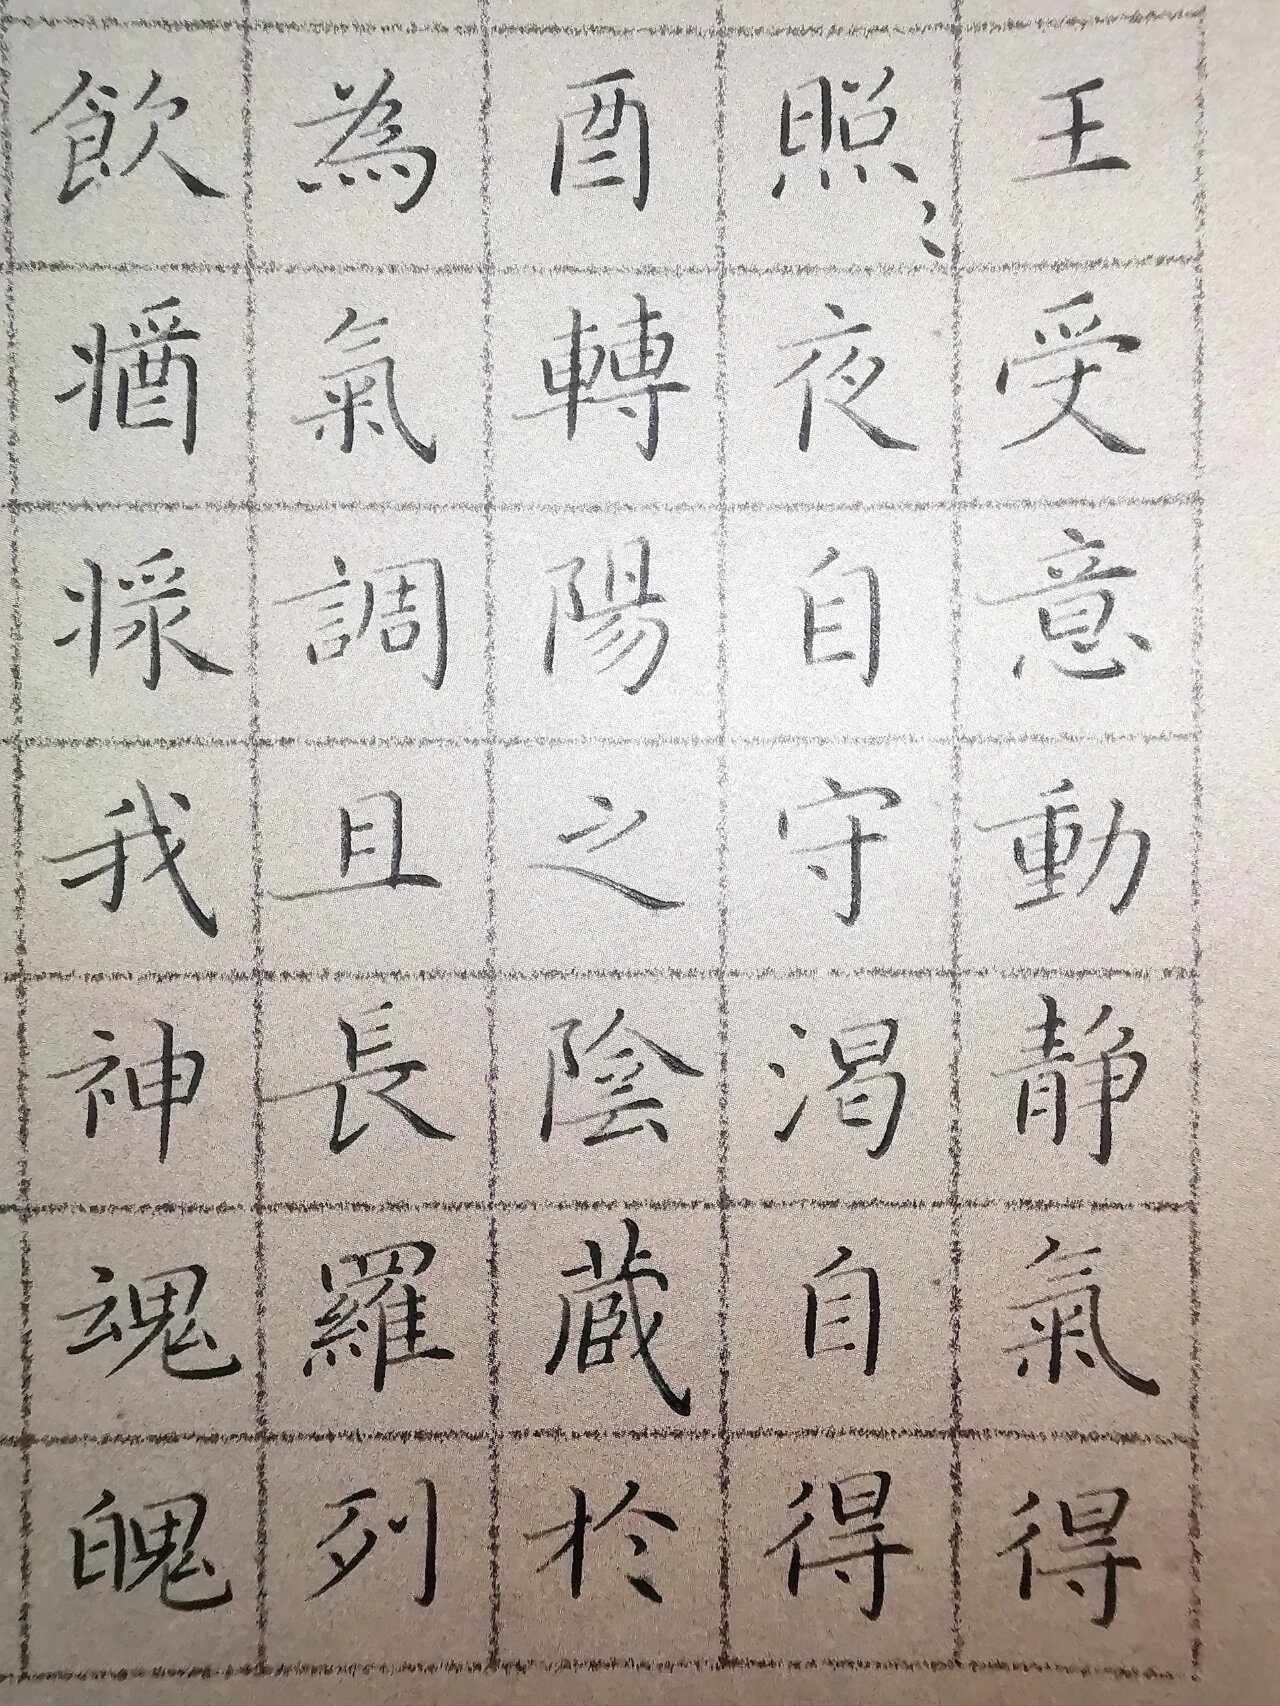 王受意動静氣得
照〻夜自守渴自得
酉轉陽之陰蔵於
為氣調且長羅列
飲我神魂魄